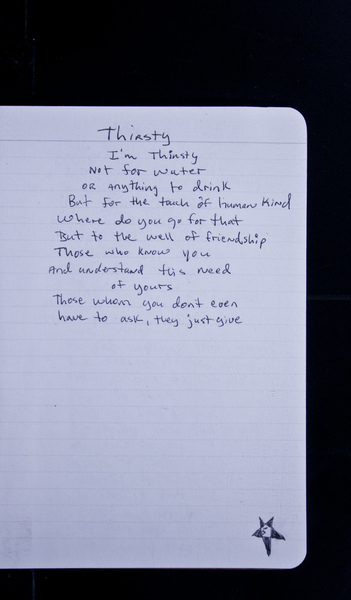 Thirsty
I'm Thirsty
Not for water
or anything to drink
But for the touch of human kind
Where do you go for that
But to the well of friendship
Those who know you
And understand this need
of yours
Those whom you don't even
have to ask, they just give